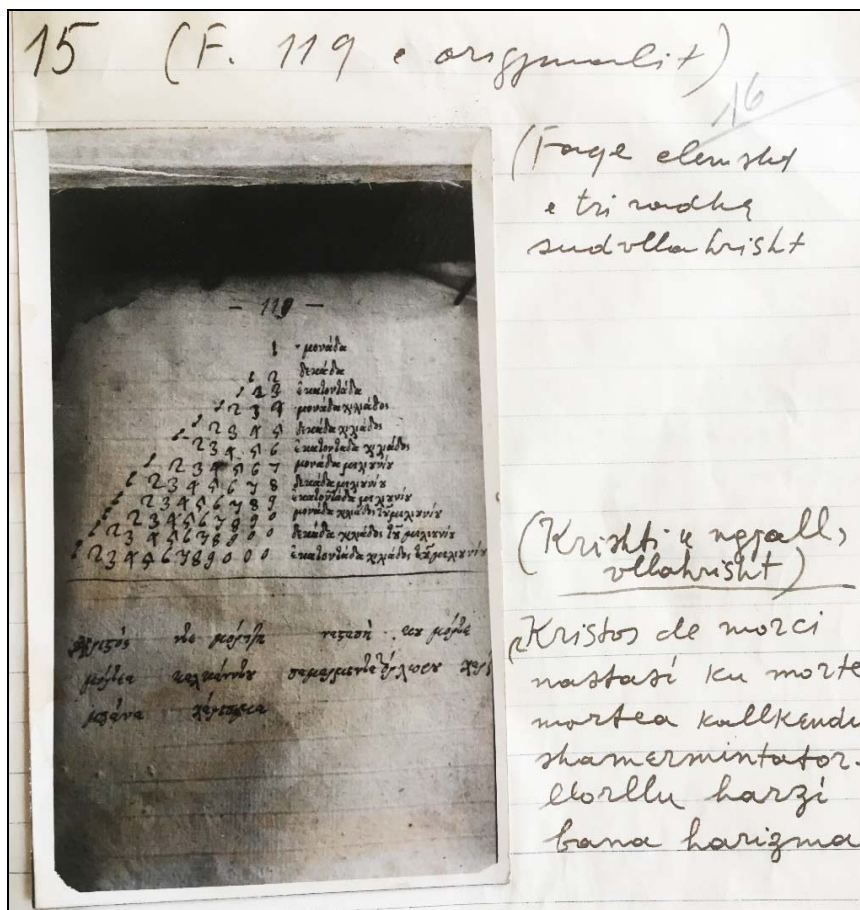 15 (F. 119 e origjinalit)
16
(Faqe elemsht
e tri radhë
sudvllahisht
- 119 -
1 - μονάδα
1 2 δεκάδα
1 2 3 ἑκατοντάδα
1 2 3 4 μονάδα χιλιάδος
1 2 3 4 5 δεκάδα χιλιάδος
1 2 3 4 5 6 ἑκατοντάδα χιλιάδος
1 2 3 4 5 6 7 μονάδα μιλιουνίου
1 2 3 4 5 6 7 8 δεκάδα μιλιουνίου
1 2 3 4 5 6 7 8 9 ἑκατοντάδα μιλιουνίου
1 2 3 4 5 6 7 8 9 0 μονάδα χιλιάδος τοῦ μιλιουνίου
1 2 3 4 5 6 7 8 9 0 0 δεκάδα χιλιάδος τοῦ μιλιουνίου
1 2 3 4 5 6 7 8 9 0 0 0 ἑκατοντάδα χιλιάδος τοῦ μιλιουνίου
χριστός ντε μόρτζη κου μόρτε
μόρτεα
μπάνα
(Krishti u ngjall,
vllahisht)
Kristos de morci
nastasi ku morte
mortea kallkendu
shamermintator.
llorllu harzi
bana harizma